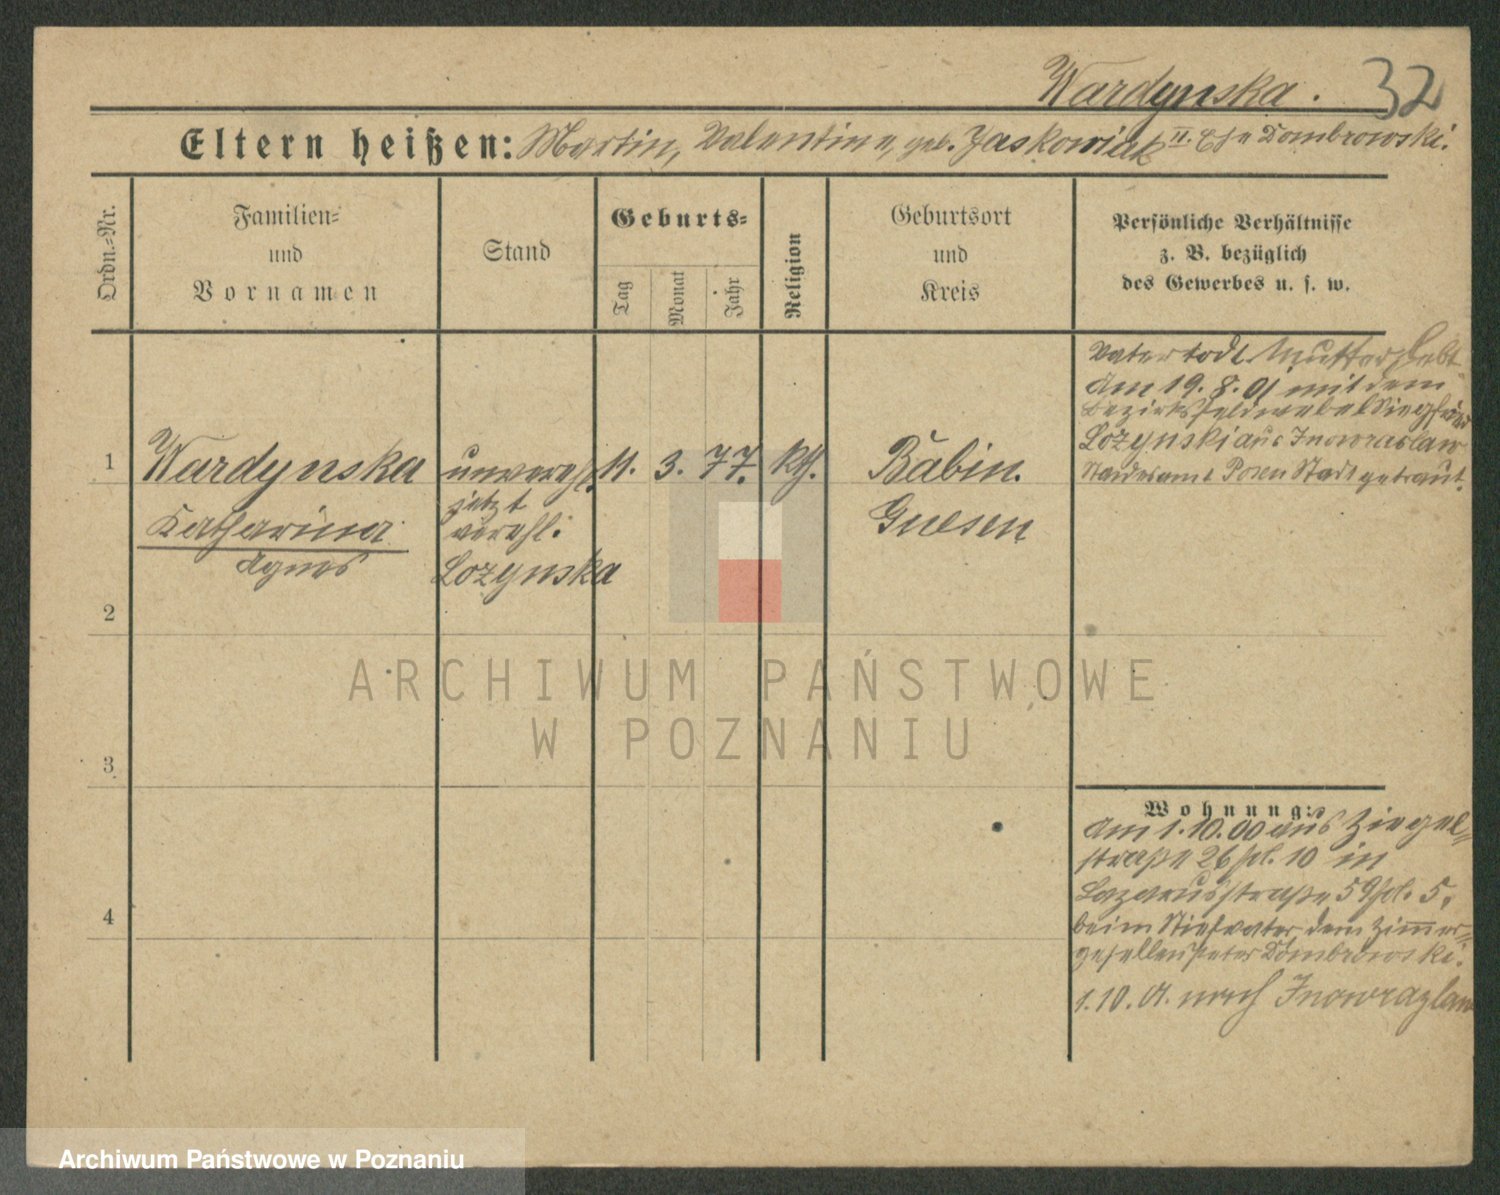 Wardynska. 32
Eltern heißen: Martin, Valentine, geb. Jaskowiak II. Ehe Dombrowski.
Ordn.-Nr.
Familien-
und
Vornamen
Stand
Geburts-
Tag
Monat
Jahr
Religion
Geburtsort
und
Kreis
Persönliche Verhältnisse
z. B. bezüglich
des Gewerbes u. s. w.
Vater todt Mutter lebt
Am 19. 8. 01 mit dem
Bezirksfeldwebel Siegfried
Lożynski aus Inowraclaw
Standesamt Posen Stadt getraut.
1 Wardynska unverehl. 11. 3. 77. kth. Babin.
jetzt
Katharina verehl. Gnesen
Agnes Lozynska
2
3
4
Wohnung:
Am 1.10.00 aus Ziegel-
straße 26 pl. 10 in
Lazarusstraße 59 pl. 5,
beim Stiefvater dem Zimmer-
gesellen Peter Dombrowski.
1.10.01. nach Inowrazlaw
ARCHIWUM PAŃSTWOWE
W POZNANIU
Archiwum Państwowe w Poznaniu